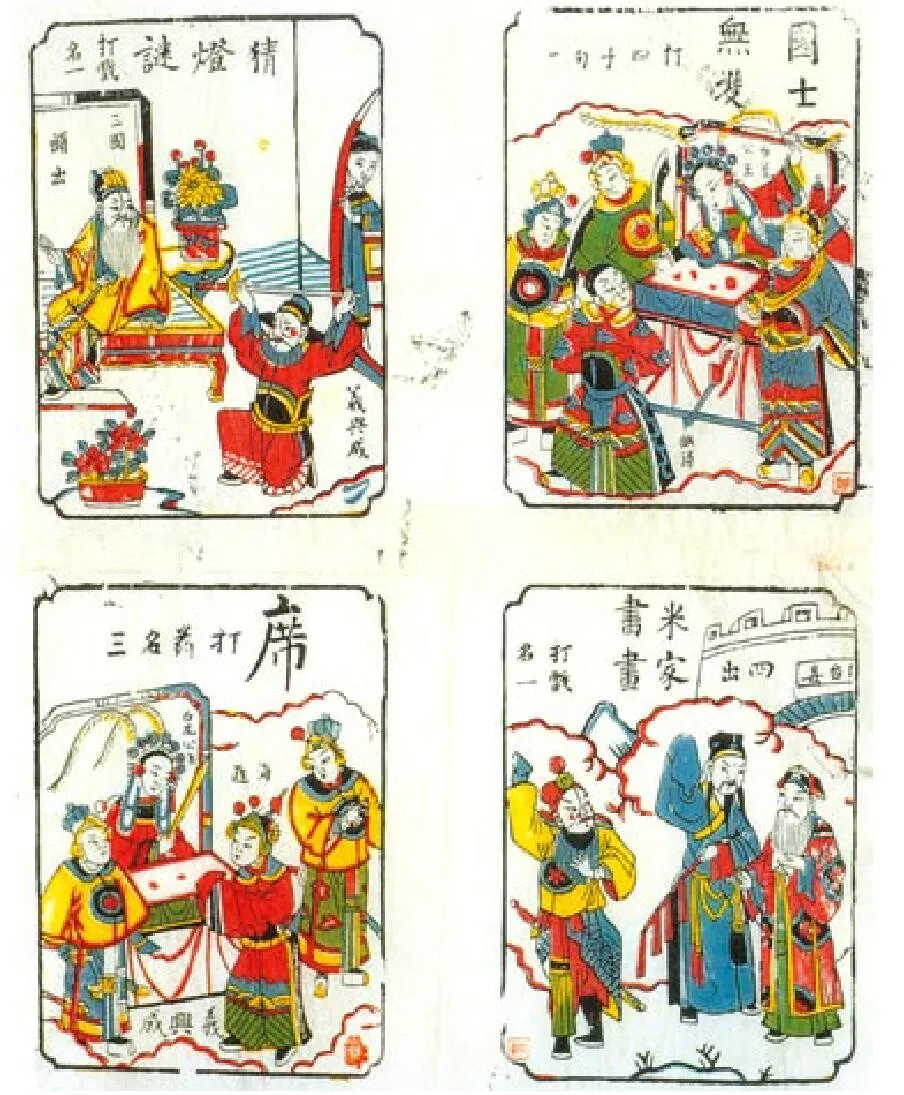 猜燈謎
打戲
名一
三國
義興成
國士
無雙
打四子句一
席
打葯名三
義興成
米家
書畫
打戲
名一
四出